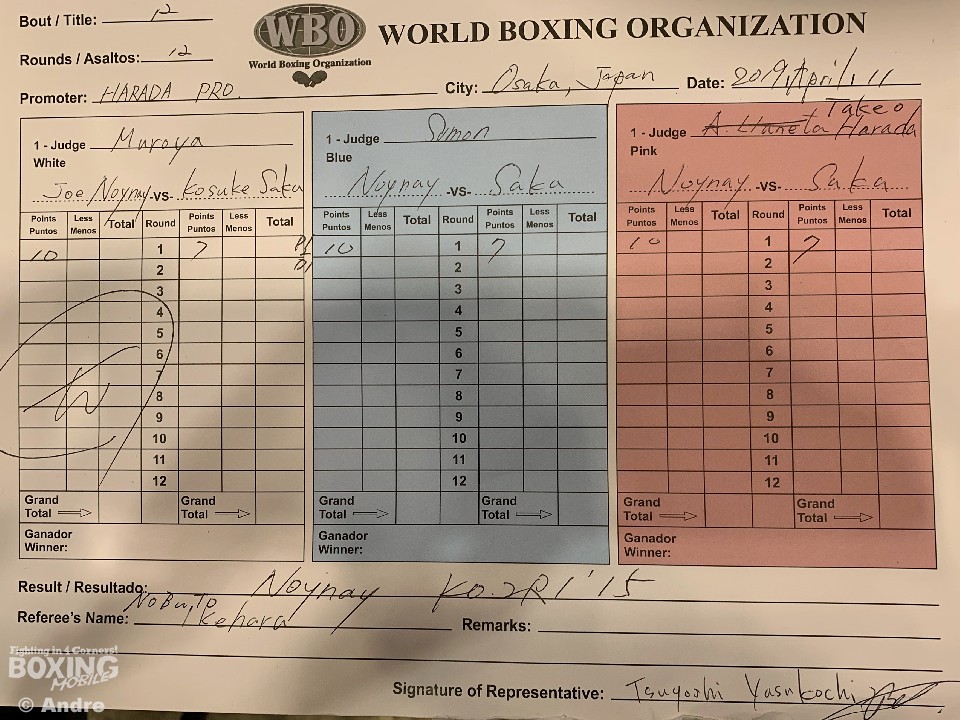 Bout / Title: 12
WBO
World Boxing Organization
WORLD BOXING ORGANIZATION
Rounds / Asaltos: 12
Promoter: HARADA PRO.
City: Osaka, Japan
Date: 2019, April, 11
1 - Judge Muroya
White
Joe Noynay -VS- Kosuke Saka
Points Puntos Less Menos Total Round Points Puntos Less Menos Total
10 1 7
2
3
4
5
6
7
8
9
10
11
12
Grand Total Grand Total
Ganador
Winner:
1 - Judge Simon
Blue
Noynay -VS- Saka
Points Puntos Less Menos Total Round Points Puntos Less Menos Total
10 1 7
2
3
4
5
6
7
8
9
10
11
12
Grand Total Grand Total
Ganador
Winner:
Takeo
1 - Judge Harada
Pink
Noynay -VS- Saka
Points Puntos Less Menos Total Round Points Puntos Less Menos Total
10 1 7
2
3
4
5
6
7
8
9
10
11
12
Grand Total Grand Total
Ganador
Winner:
Result / Resultado: Noynay KO 2R 1'15
Nobuto
Referee's Name: Ikehara
Remarks:
Signature of Representative: Tsuyoshi Yasukochi
Fighting in 4 Corners!
BOXING
MOBILE
© Andre